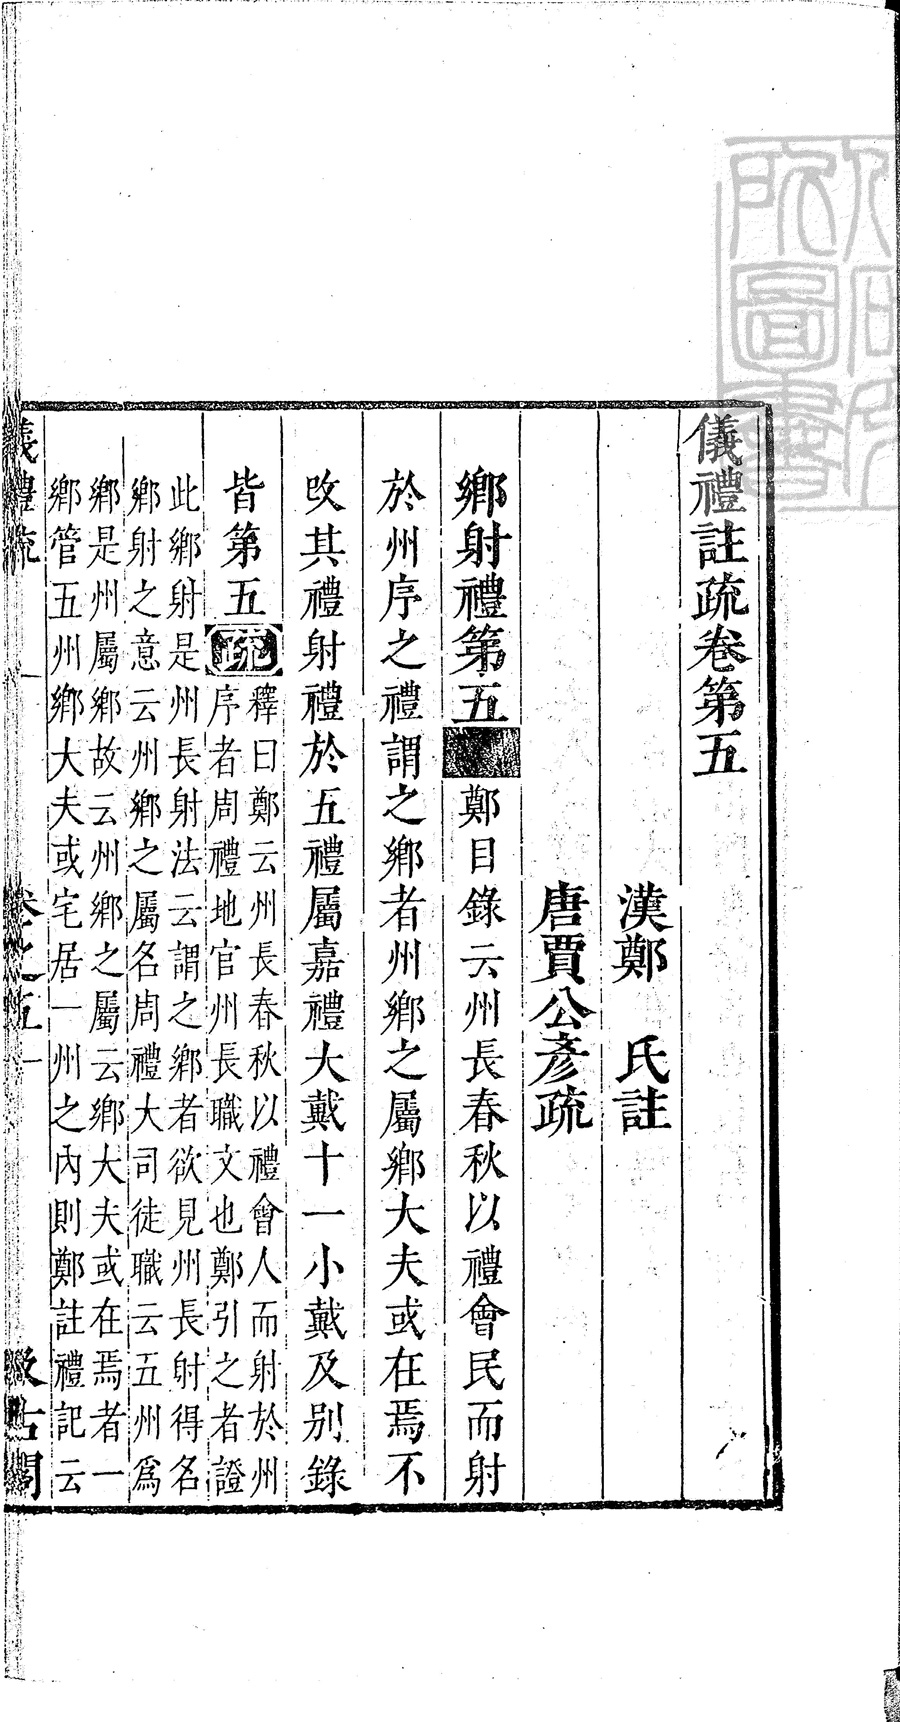 儀禮註疏卷第五
漢鄭　氏註
唐賈公彥疏
鄉射禮第五　鄭目錄云州長春秋以禮會民而射
於州序之禮謂之鄉者州鄉之屬鄉大夫或在焉不
改其禮射禮於五禮屬嘉禮大戴十一小戴及別錄
皆第五疏釋曰鄭云州長春秋以禮會人而射於州
序者周禮地官州長職文也鄭引之者證
此鄉射是州長射法云謂之鄉者欲見州長射得名
鄉射之意云州鄉之屬名周禮大司徒職云五州爲
鄉是州屬鄉故云州鄉之屬云鄉大夫或在焉者一
鄉管五州鄉大夫或宅居一州之內則鄭註禮記云
儀禮疏　卷之五　一　汲古閣